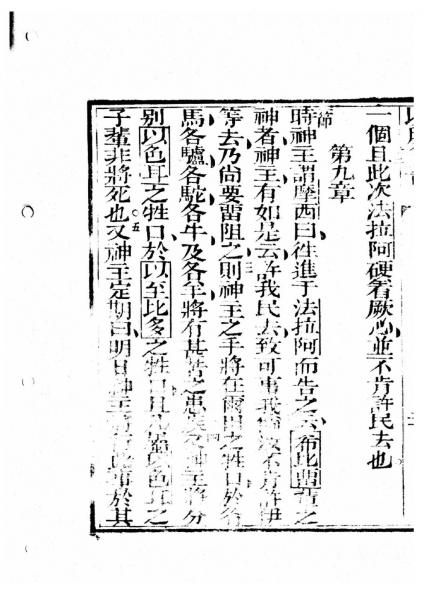 一個且此次法拉阿硬着厥心並不肯許民去也
第九章
節時神主謂摩西曰往進于法拉阿而告之云希比留輩之
神者神主有如是云許我民去致可事我倘汝不肯許伊
等去乃尚要留阻之則神主之手將在爾田之牲口於各
馬各驢各駝各牛及各羊將有甚苦之
神主將分
別以色耳之牲口於以至比多之牲口且凡屬以色耳之
子輩非將死也五又神主定期曰明日神主
於其